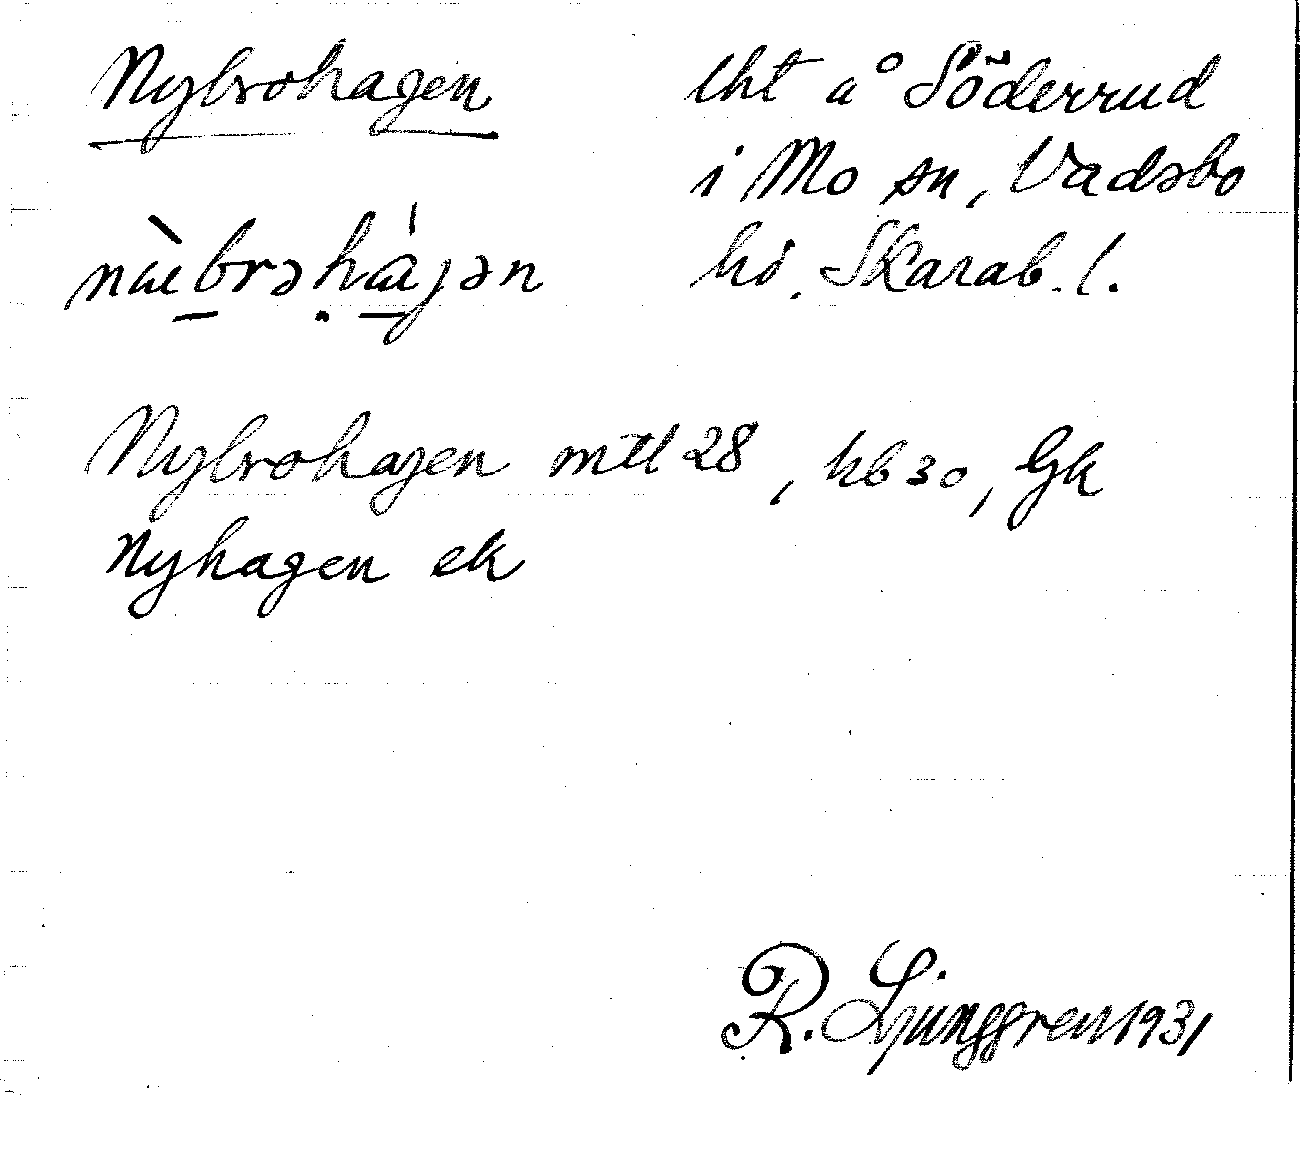 Nybrohagen lht å Söderrud
i Mo sn, Vadsbo
hd. Skarab. l.
Nybrohagen mtl 28, hb 30, Gk
Nyhagen ek
R. Ljunggren 1931